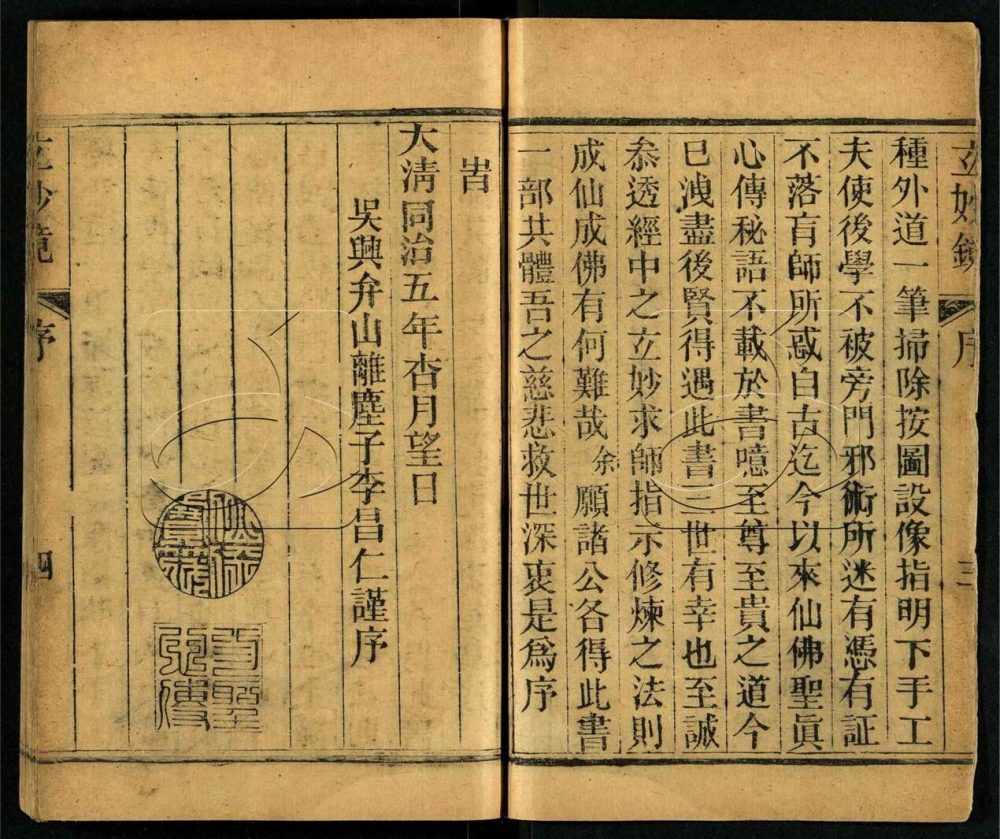 玄妙鏡 序 三
種外道一筆掃除按圖設像指明下手工
夫使後學不被旁門邪術所迷有憑有証
不落盲師所惑自古迄今以來仙佛聖眞
心傳秘語不載於書噫至尊至貴之道今
已洩盡後賢得遇此書三世有幸也至誠
叅透經中之玄妙求師指示修煉之法則
成仙成佛有何難哉余願諸公各得此書
一部共體吾之慈悲救世深衷是爲序
旹
大清同治五年杏月望日
吳興弁山離塵子李昌仁謹序
玄妙鏡 序 四